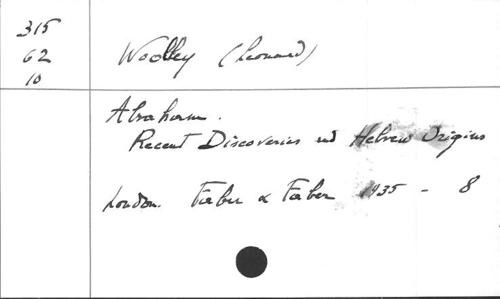 315
62
10
Woolley (Leonard)
Abraham.
Recent Discoveries and Hebrew Origins
London. Faber & Faber 1935 - 8